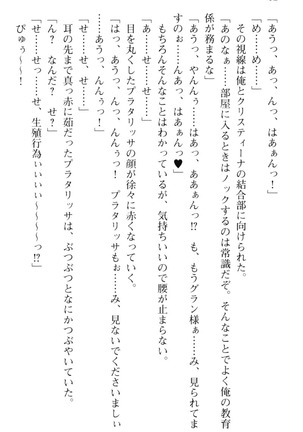 「あうっ、あっ、んっ、はぁっ！」
「め……め……」
その視線は俺とクリスティーナの結合部に向けられた。
「あのなぁ。部屋に入るときはノックするのは常識だぞ。そんなことでよく俺の教育
係が務まるな」
「あうっ、やんんぅ……はあっ、ああぁんっ!?　も、もうグラン様ぁ……み、見られてま
すのぉ……んんっ、はあぁんっ♥」
もちろんそんなことはわかっているが、気持ちいいので腰が止まらない。
「せ……せ……」
目を丸くしたプラタリッサの顔が徐々に赤くなっていく。
「はっ、あうっ、んっ、んんぅっ！　プラタリッサもぉ……み、見ないでくださいましぃ
……あうっ、んんぅっ！」
「せ、せ、せ……」
耳の先まで真っ赤に茹だったプラタリッサは、ぶつぶつとなにかつぶやいていた。
「ん？　なんだ？」
「せ……せせっ……せ、生殖行為ぃぃぃぃ〜〜〜〜っ!?」
びゅぅ〜〜！